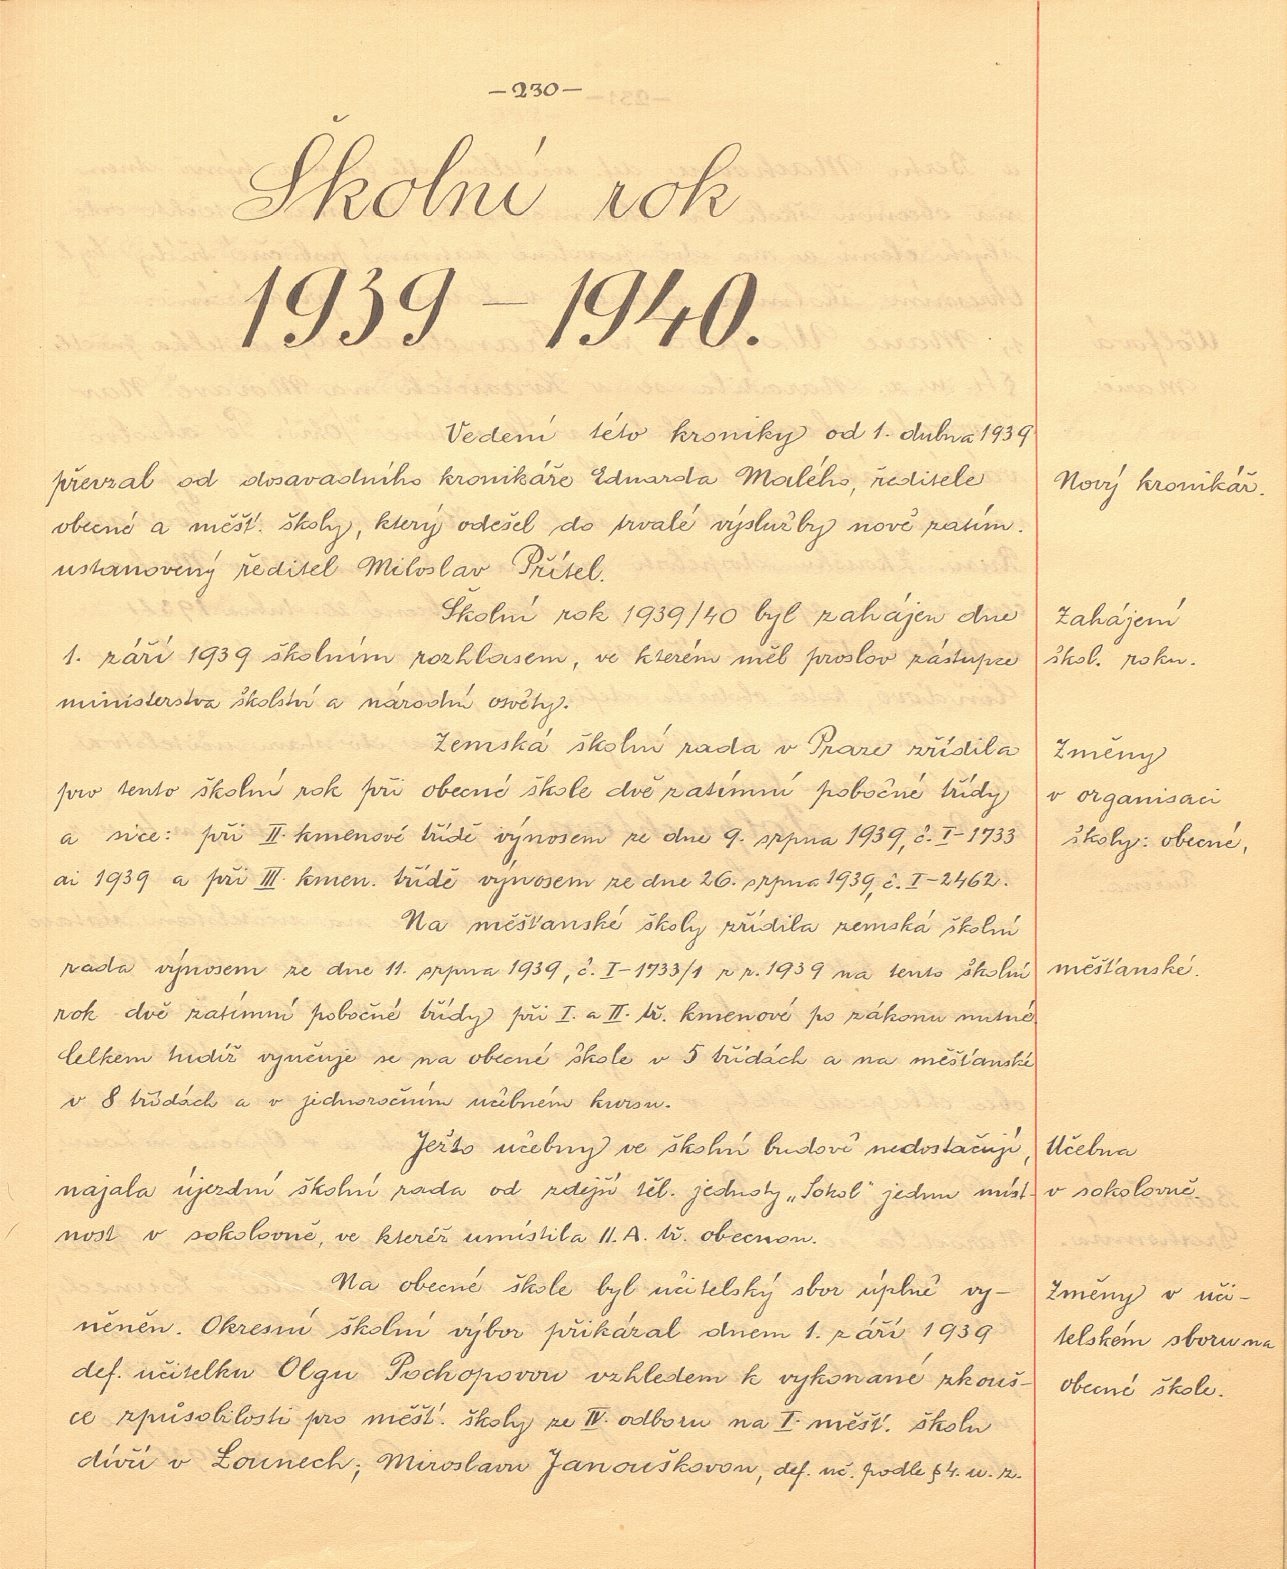 —230—
Školní rok
1939 – 1940.
Vedení této kroniky od 1. dubna 1939
převzal od dosavadního kronikáře Eduarda Malého, ředitele
Nový kronikář.
obecné a měšť. školy, který odešel do trvalé výslužby nově zatím.
ustanovený ředitel Miloslav Přítel.
Školní rok 1939/40 byl zahájen dne
Zahájení
1. září 1939 školním rozhlasem, ve kterém měl proslov zástupce
škol. roku.
ministerstva školství a národní osvěty.
Zemská školní rada v Praze zřídila
Změny
pro tento školní rok při obecné škole dvě zatímní pobočné třídy
v organisaci
a sice: při II. kmenové třídě výnosem ze dne 9. srpna 1939, č. I–1733
školy: obecné,
ai 1939 a při III. kmen. třídě výnosem ze dne 26. srpna 1939, č. I–2462.
Na měšťanské školy zřídila zemská školní
rada výnosem ze dne 11. srpna 1939, č. I–1733/1 z r. 1939 na tento školní
měšťanské.
rok dvě zatímní pobočné třídy při I. a II. tř. kmenové po zákonu nutné.
Celkem tudíž vyučuje se na obecné škole v 5 třídách a na měšťanské
v 8 třídách a v jednoročním učebném kursu.
Ježto učebny ve školní budově nedostačují,
Učebna
najala újezdní školní rada od zdejší těl. jednoty „Sokol“ jednu míst-
v sokolovně.
nost v sokolovně, ve kteréž umístila II. A. tř. obecnou.
Na obecné škole byl učitelský sbor úplně vy–
Změny v uči–
něněn. Okresní školní výbor přikázal dnem 1. září 1939
telském sboru na
def. učitelku Olgu Pochopovou vzhledem k vykonané zkouš–
obecné škole.
ce způsobilosti pro měšť. školy ze IV. odboru na I. měšť. školu
dívčí v Lounech; Miroslavu Janouškovou, def. uč. podle § 4. u. z.